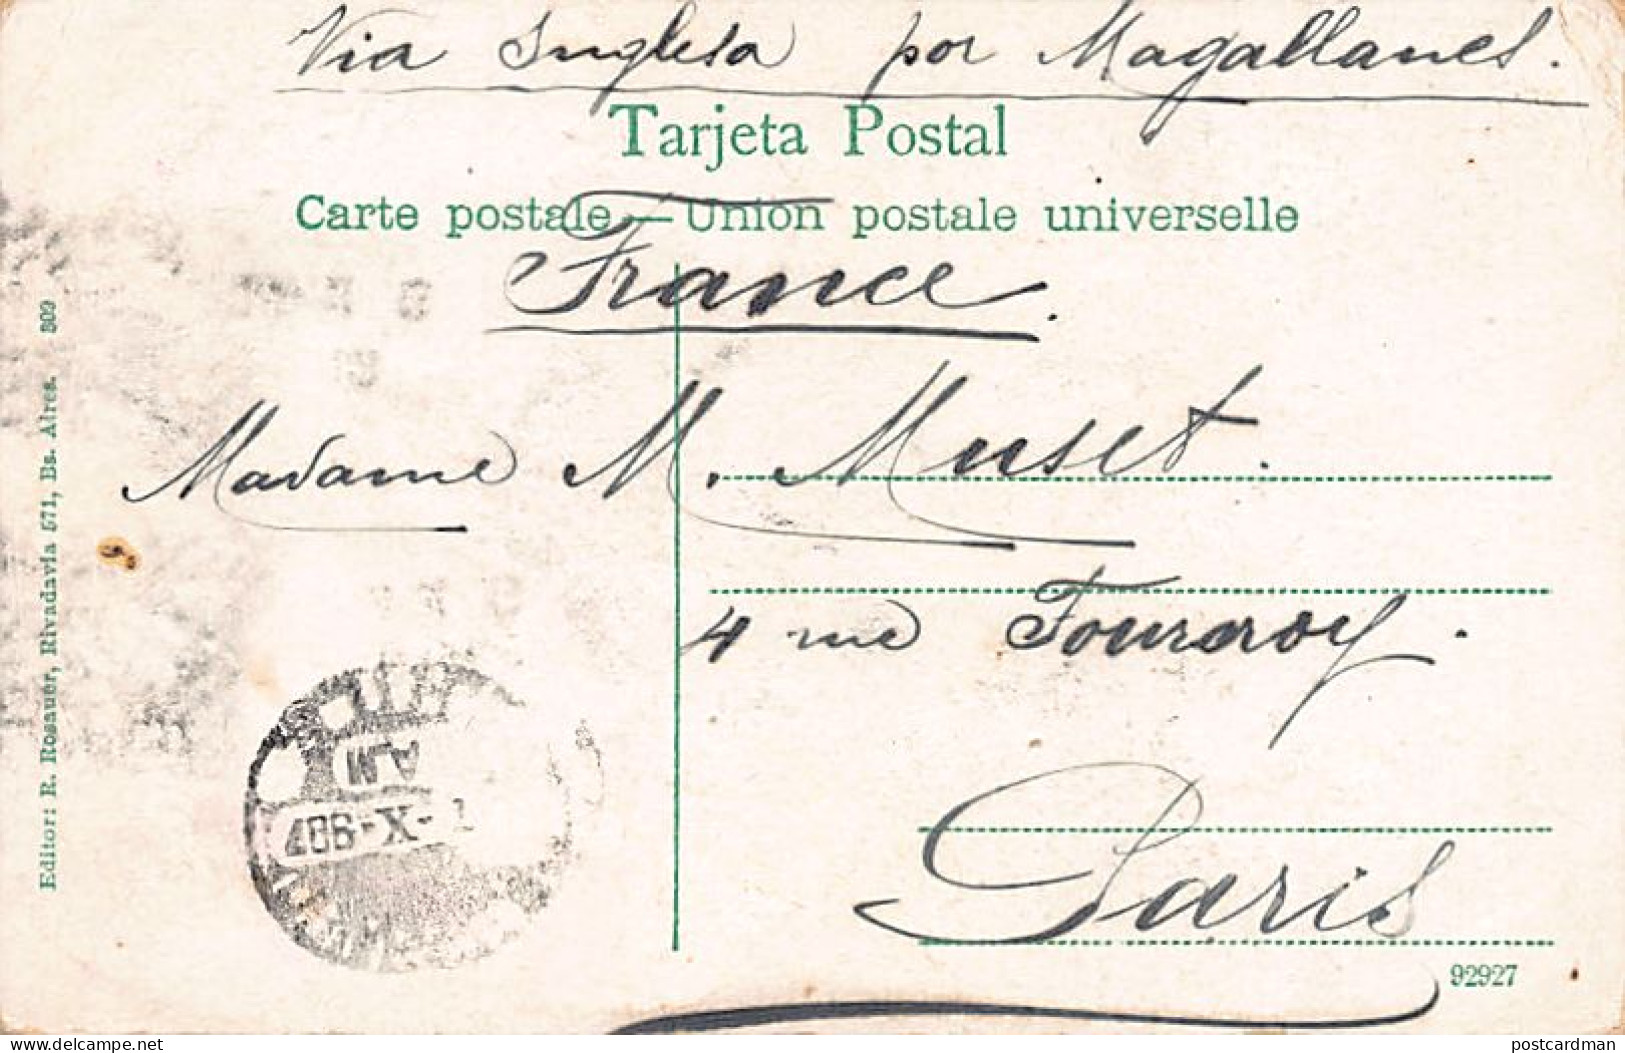 Via Inglesa por Magallanes.
Tarjeta Postal
Carte postale — Union postale universelle
France.
Madame M. Muset.
4 rue Fourcroy.
Paris
92927
Editor: R. Rosauer, Rivadavia 571, Bs. Aires. 809
A.M
delcampe.net
postcardman